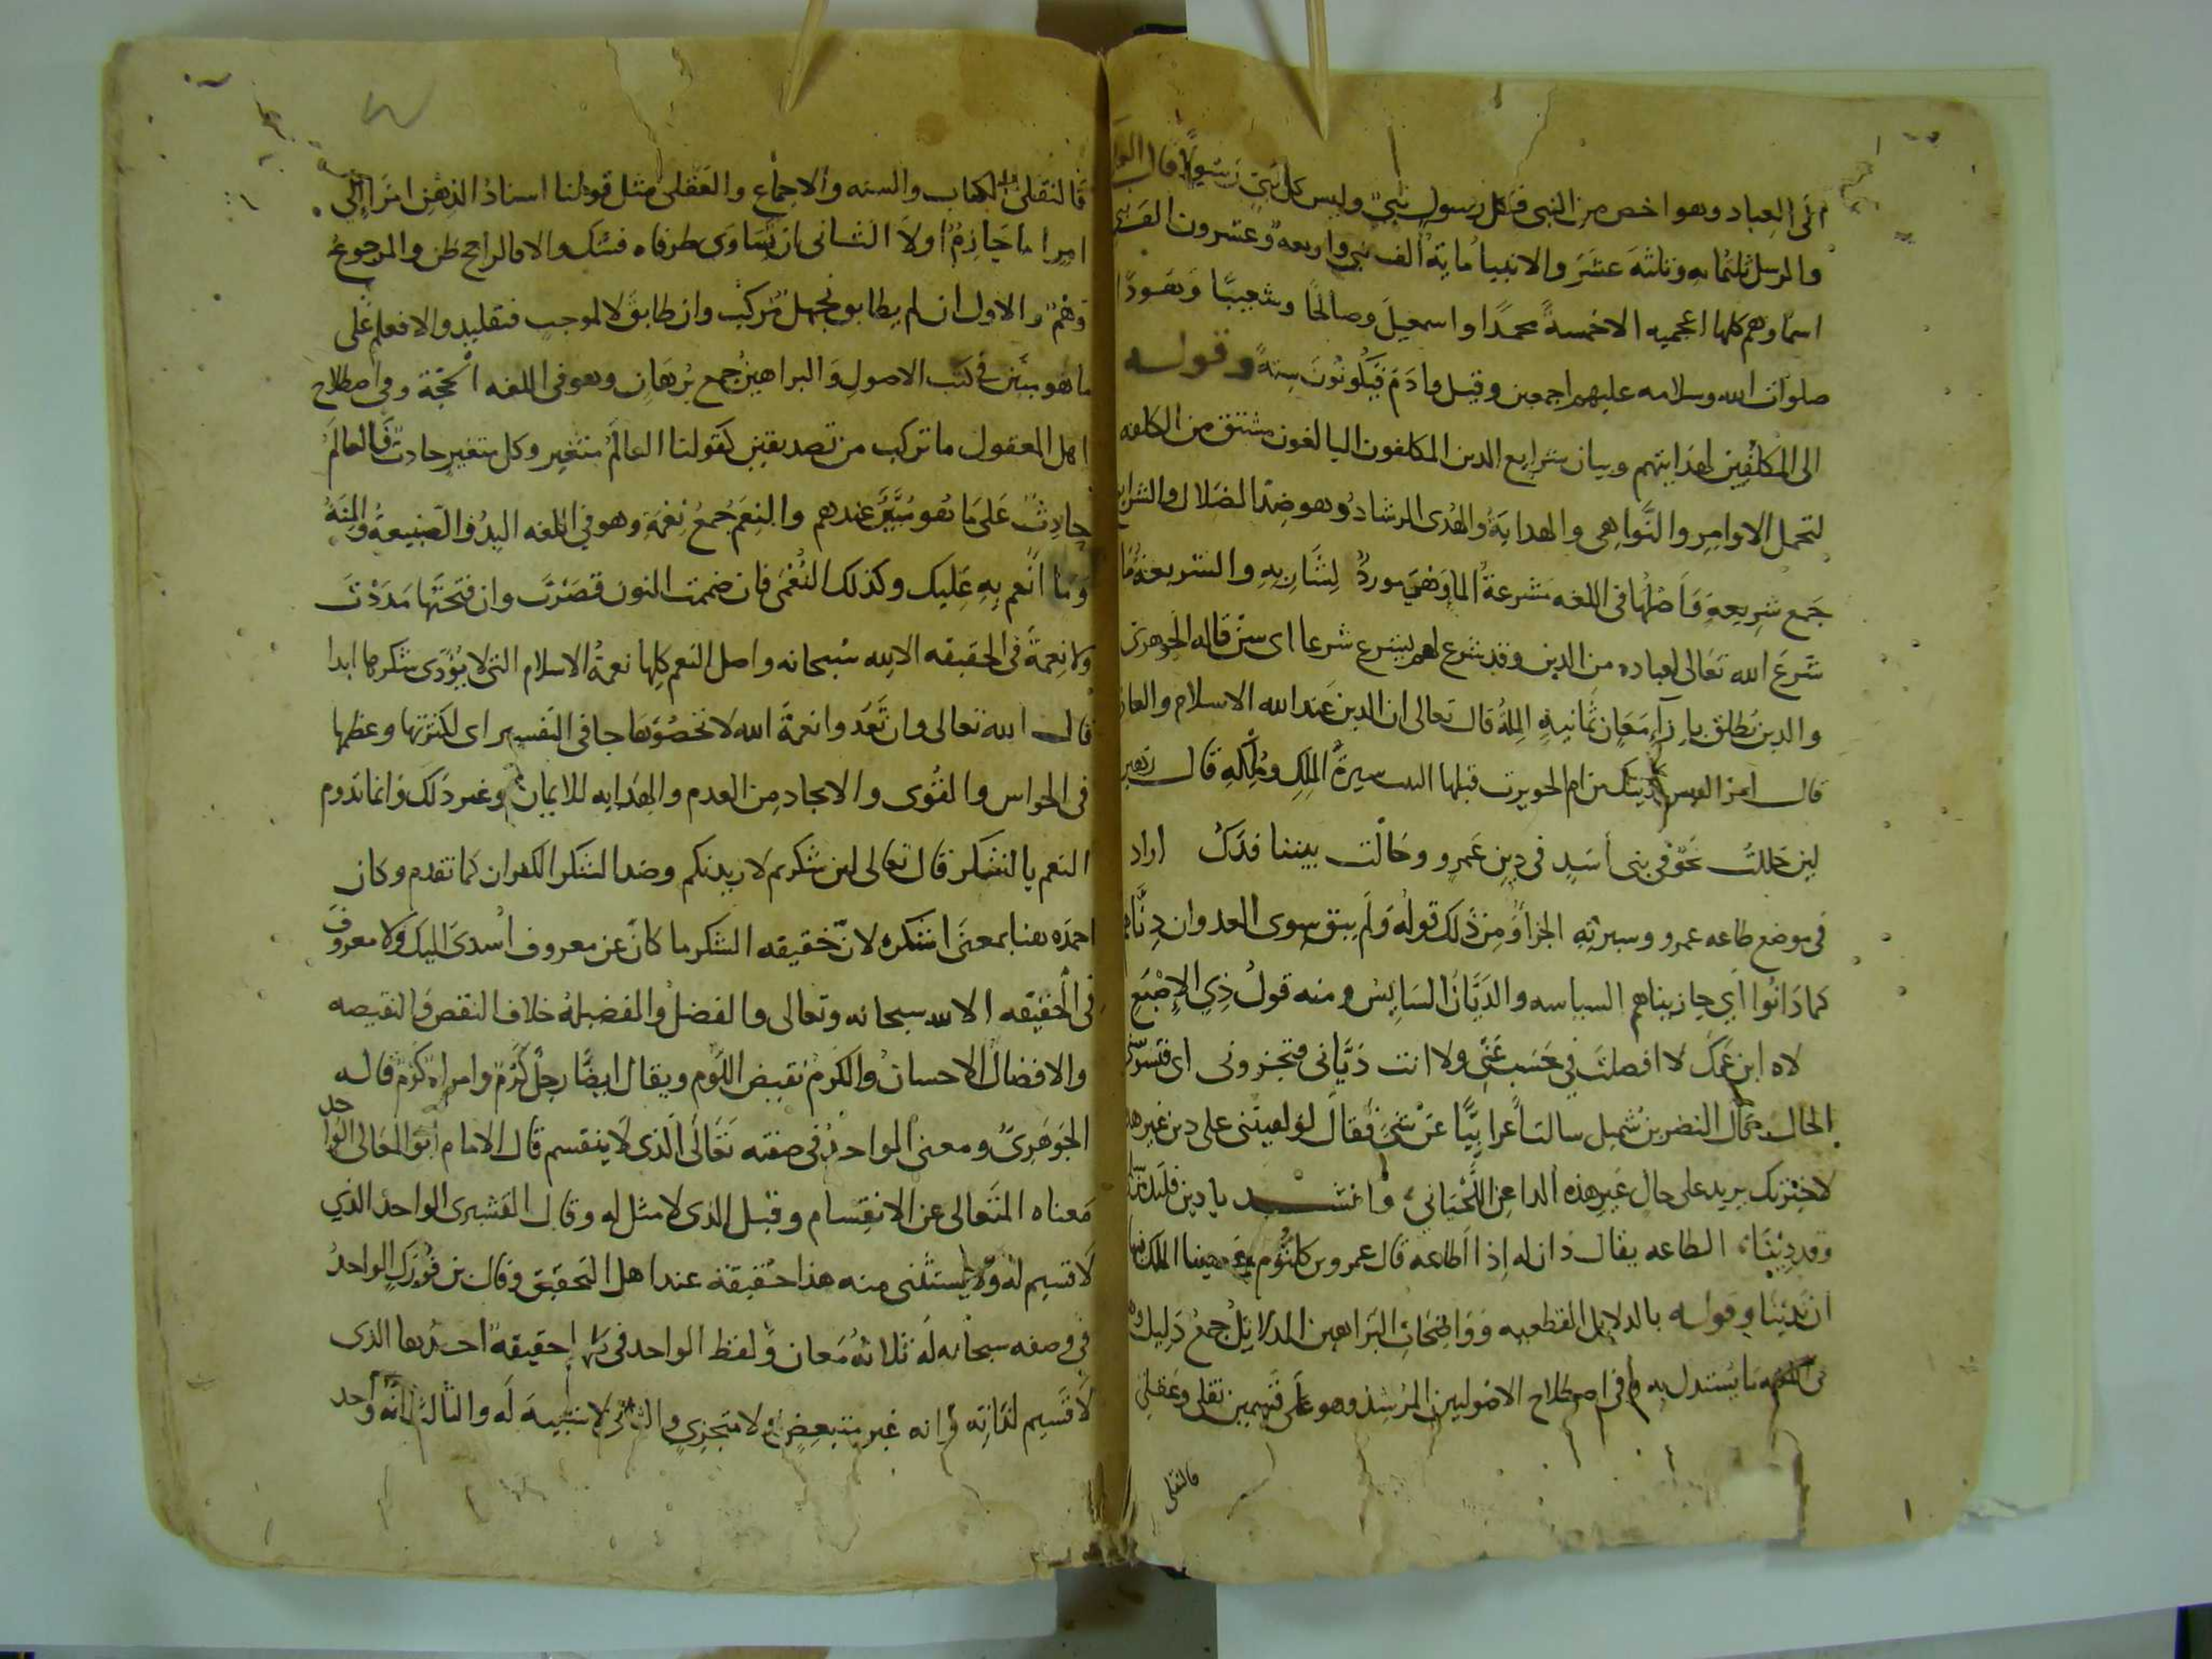 الى العباد وهو اخص من النبي فكل رسول نبي وليس كل نبي رسولا قال
والرسل ثلثمايه وثلثة عشر والانبيا ماية الف نبي واربعه وعشرون الف نبي
اسماوهم كلها اعجميه الا خمسة محمدا واسمعيل وصالحا وشعيبا وهودا
صلوات الله وسلامه عليهم اجمعين وقيل وادم فيكونون ستة وقوله
الى المكلفين لهدايتهم وبيان شرايع الدين المكلفون البالغون مشتق من الكلفه
لتحمل الاوامر والنواهي والهداية والهدى الرشاد وهو ضد الضلال والشرايع
جمع شريعة واصلها في اللغه مشرعة الما وهي مورد لشاربه والشريعة ما
شرع الله تعالى لعباده من الدين وقد شرع لهم يشرع شرعا اى سن قاله الجوهري
والدين يطلق بازآء معان ثمانية الملة قال تعالى ان الدين عند الله الاسلام والعاد
قال امرؤ القيس كدينك من ام الحويرث قبلها سيرة الملك وملكه قال زهير
لين حللت بجو في بني اسد في دين عمرو وحالت بيننا فدك اراد
في موضع طاعه عمرو وسيرته الجزآ ومن ذلك قوله ولم يبق سوى العدوان دناهم
كما دانوا اي جازيناهم السياسه والديان السايس ومنه قول ذي الاصبع
لاه ابن عمك لا افضلت في حسب عني ولا انت دياني فتخزوني اى فتسوسني
الحال قال النضر بن شميل سالت اعرابيا عن شي فقال لو لقيتني على دين غير هذه
لاخبرتك يريد على حال غير هذه الدا عن اللحياني وانشد يا دين قلبك
وقد دينا الطاعه يقال دان له اذا اطاعه قال عمرو بن كلثوم عصينا الملك فيها
ان ندينا وقوله بالدلايل القطعيه وواضحات البراهين الدلايل جمع دليل وهو
في اللغه ما يستدل به وفي اصطلاح الاصوليين المرشد وهو على قسمين نقلي وعقلي
فالنقلي
فالنقلي الكتاب والسنه والاجماع والعقلي مثل قولنا اسناد الذهن امرا الى
امر اما جازم اولا الثاني ان تساوى طرفاه فشك والا فالراجح ظن والمرجوح
وهم والاول ان لم يطابق فجهل مركب وان طابق لا لموجب فتقليد والا فعلم على
ما هو مبين في كتب الاصول والبراهين جمع برهان وهو في اللغه الحجة وفي اصطلاح
اهل المعقول ما تركب من تصديقين كقولنا العالم متغير وكل متغير حادث فالعالم
حادث على ما هو مبين عندهم والنعم جمع نعمة وهو في اللغه اليد والصنيعة والمنة
وما انعم به عليك وكذلك النعمى فان ضممت النون قصرت وان فتحتها مددت
ولا نعمة في الحقيقه الا لله سبحانه واصل النعم كلها نعمة الاسلام التي لا يؤدى شكرها ابدا
قال الله تعالى وان تعدوا نعمة الله لا تحصوها جا في التفسير اى لكثرتها وعظمها
في الحواس والقوى والايجاد من العدم والهدايه للايمان وغير ذلك وانما تدوم
النعم بالشكر قال تعالى لين شكرتم لازيدنكم وضد الشكر الكفران كما تقدم وكان
احمده هنا بمعنى اشكره لان حقيقه الشكر ما كان عن معروف اسدى اليك ولا معروف
في الحقيقه الا لله سبحانه وتعالى والفضل والفضيلة خلاف النقص والنقيصه
والافضال الاحسان والكرم نقيض اللوم ويقال ايضا رجل كرم وامراة كرم قاله
الجوهري ومعنى الواحد في صفته تعالى الذي لا ينقسم قال الامام ابو المعالي الواحد
معناه المتعالى عن الانقسام وقيل الذى لا مثل له وقال القشيري الواحد الذي
لا قسيم له ولا يستثنى منه هذا حقيقة عند اهل التحقيق وقال بن فورك الواحد
في وصفه سبحانه له ثلاثة معان ولفظ الواحد في كلها حقيقة احدها الذى
لا قسيم لذاته وانه غير متبعض ولا متجزي والثاني لا شبيه له والثالث انه واحد